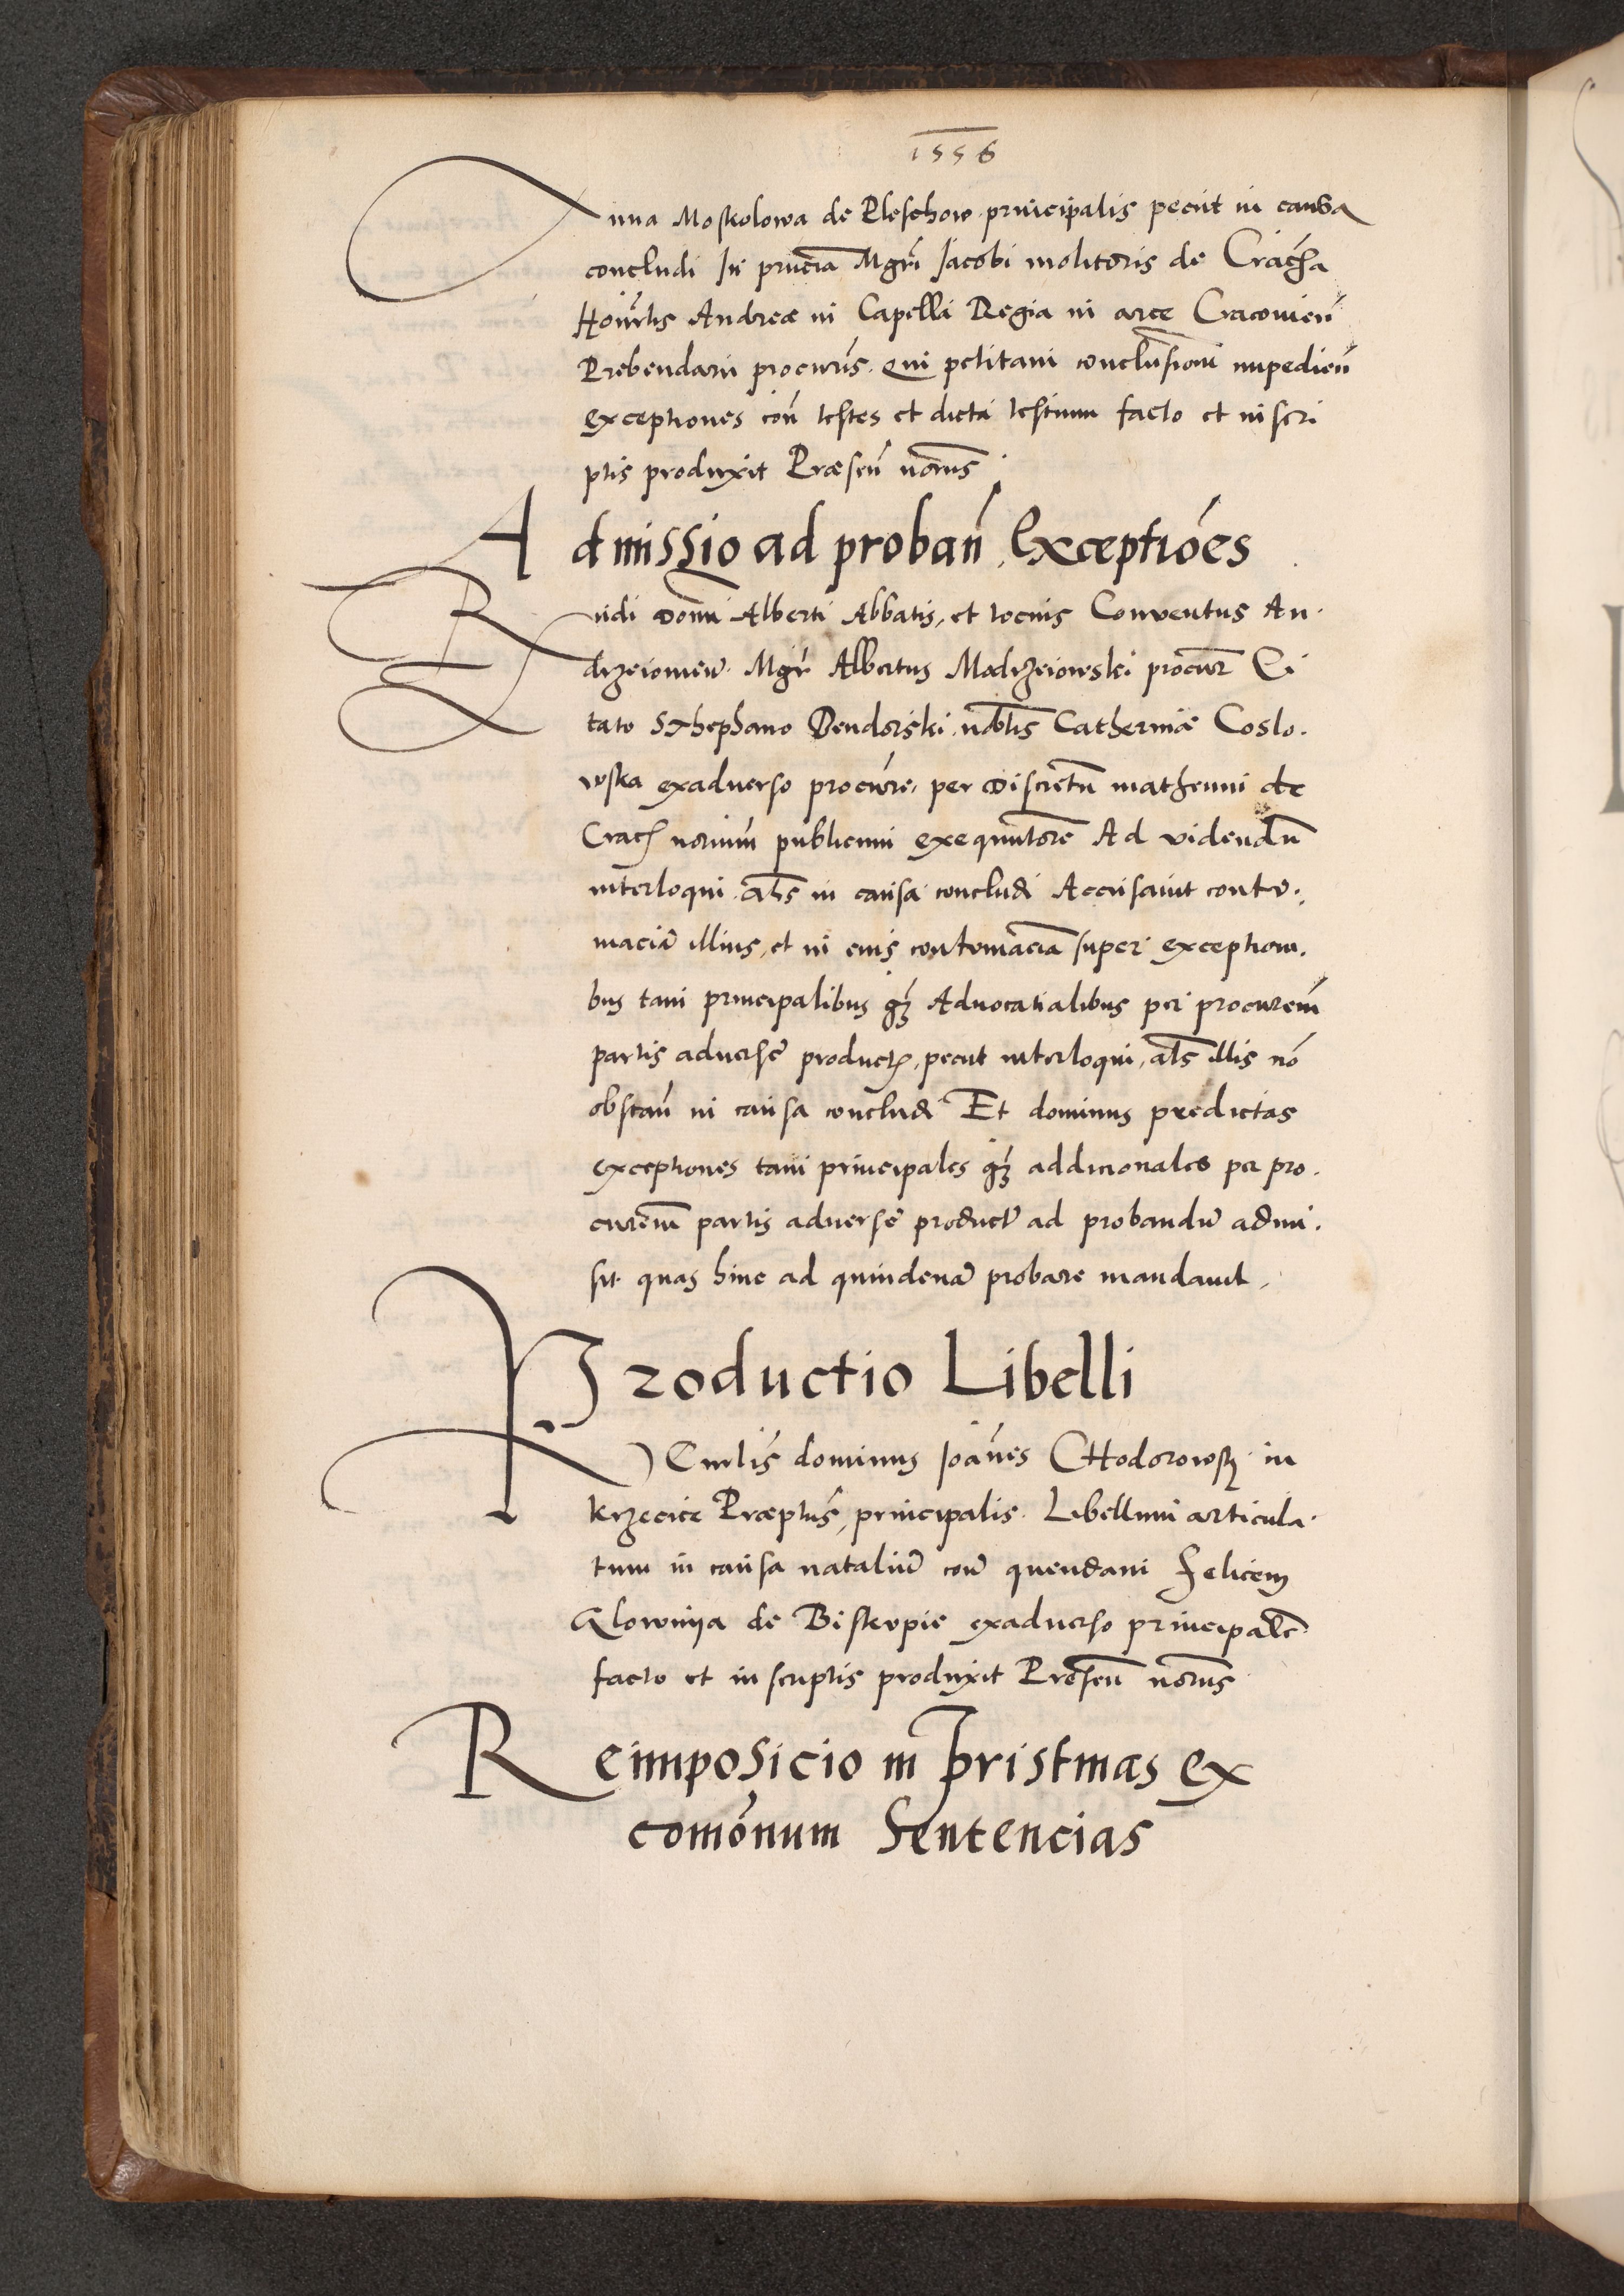 1556
Anna Moskolowa de Pleschow principalis peciit in causa
concludi In pñcia Mgrĩ Jacobi molitoris de Crac̃ha
Honrlis Andreæ in Capella Regia in arce Cracovień
Prebendarii procuris. Qui petitam conclusionẽ impedień
exceptiones coñ testes et dicta testium facto et in scri
ptis produxit Præseñ norius
Admissio ad probań Exceptiões
Rndi Domĩ Alberti Abbatis, et tocius Conventus An.
drzeiovień. Mgr̃ Albertus Modrzeiowski procur̃ Ci
tato Sthephano Dendorski, nobilis Catherinæ Coslo.
wska exadverso procure, per Discretũ matheum de
Crac̃ norium publicum exequutorẽ Ad videndũ
interloqui al̃s in causa concludi Accusavit contu.
maciã illius, et in eius contumaciã super exceptioni.
bus tam principalibus q̃ Advocatialibus per procurem̃
partis adversẽ product, peciit interloqui, al̃s illis nõ
obstañ in causa concludi Et dominus predictas
exceptiones tam principales q̃ addicionales per pro.
curem̃ partis adversẽ product̃ ad probandũ admi.
sit. quas hinc ad quindenã probare mandavit,
Productio Libelli
Rverlis̃ dominus Joañes CHodorowsky in
Krzecice Præptus̃, principalis. Libellum articula.
tum in causa nataliũ coñ quendam Felicem
Glowniia de Biskupie exadverso principalẽ
facto et in scriptis produxit Preseñ norius
Reimposicio in pristinas ex
comõnum Sentencias